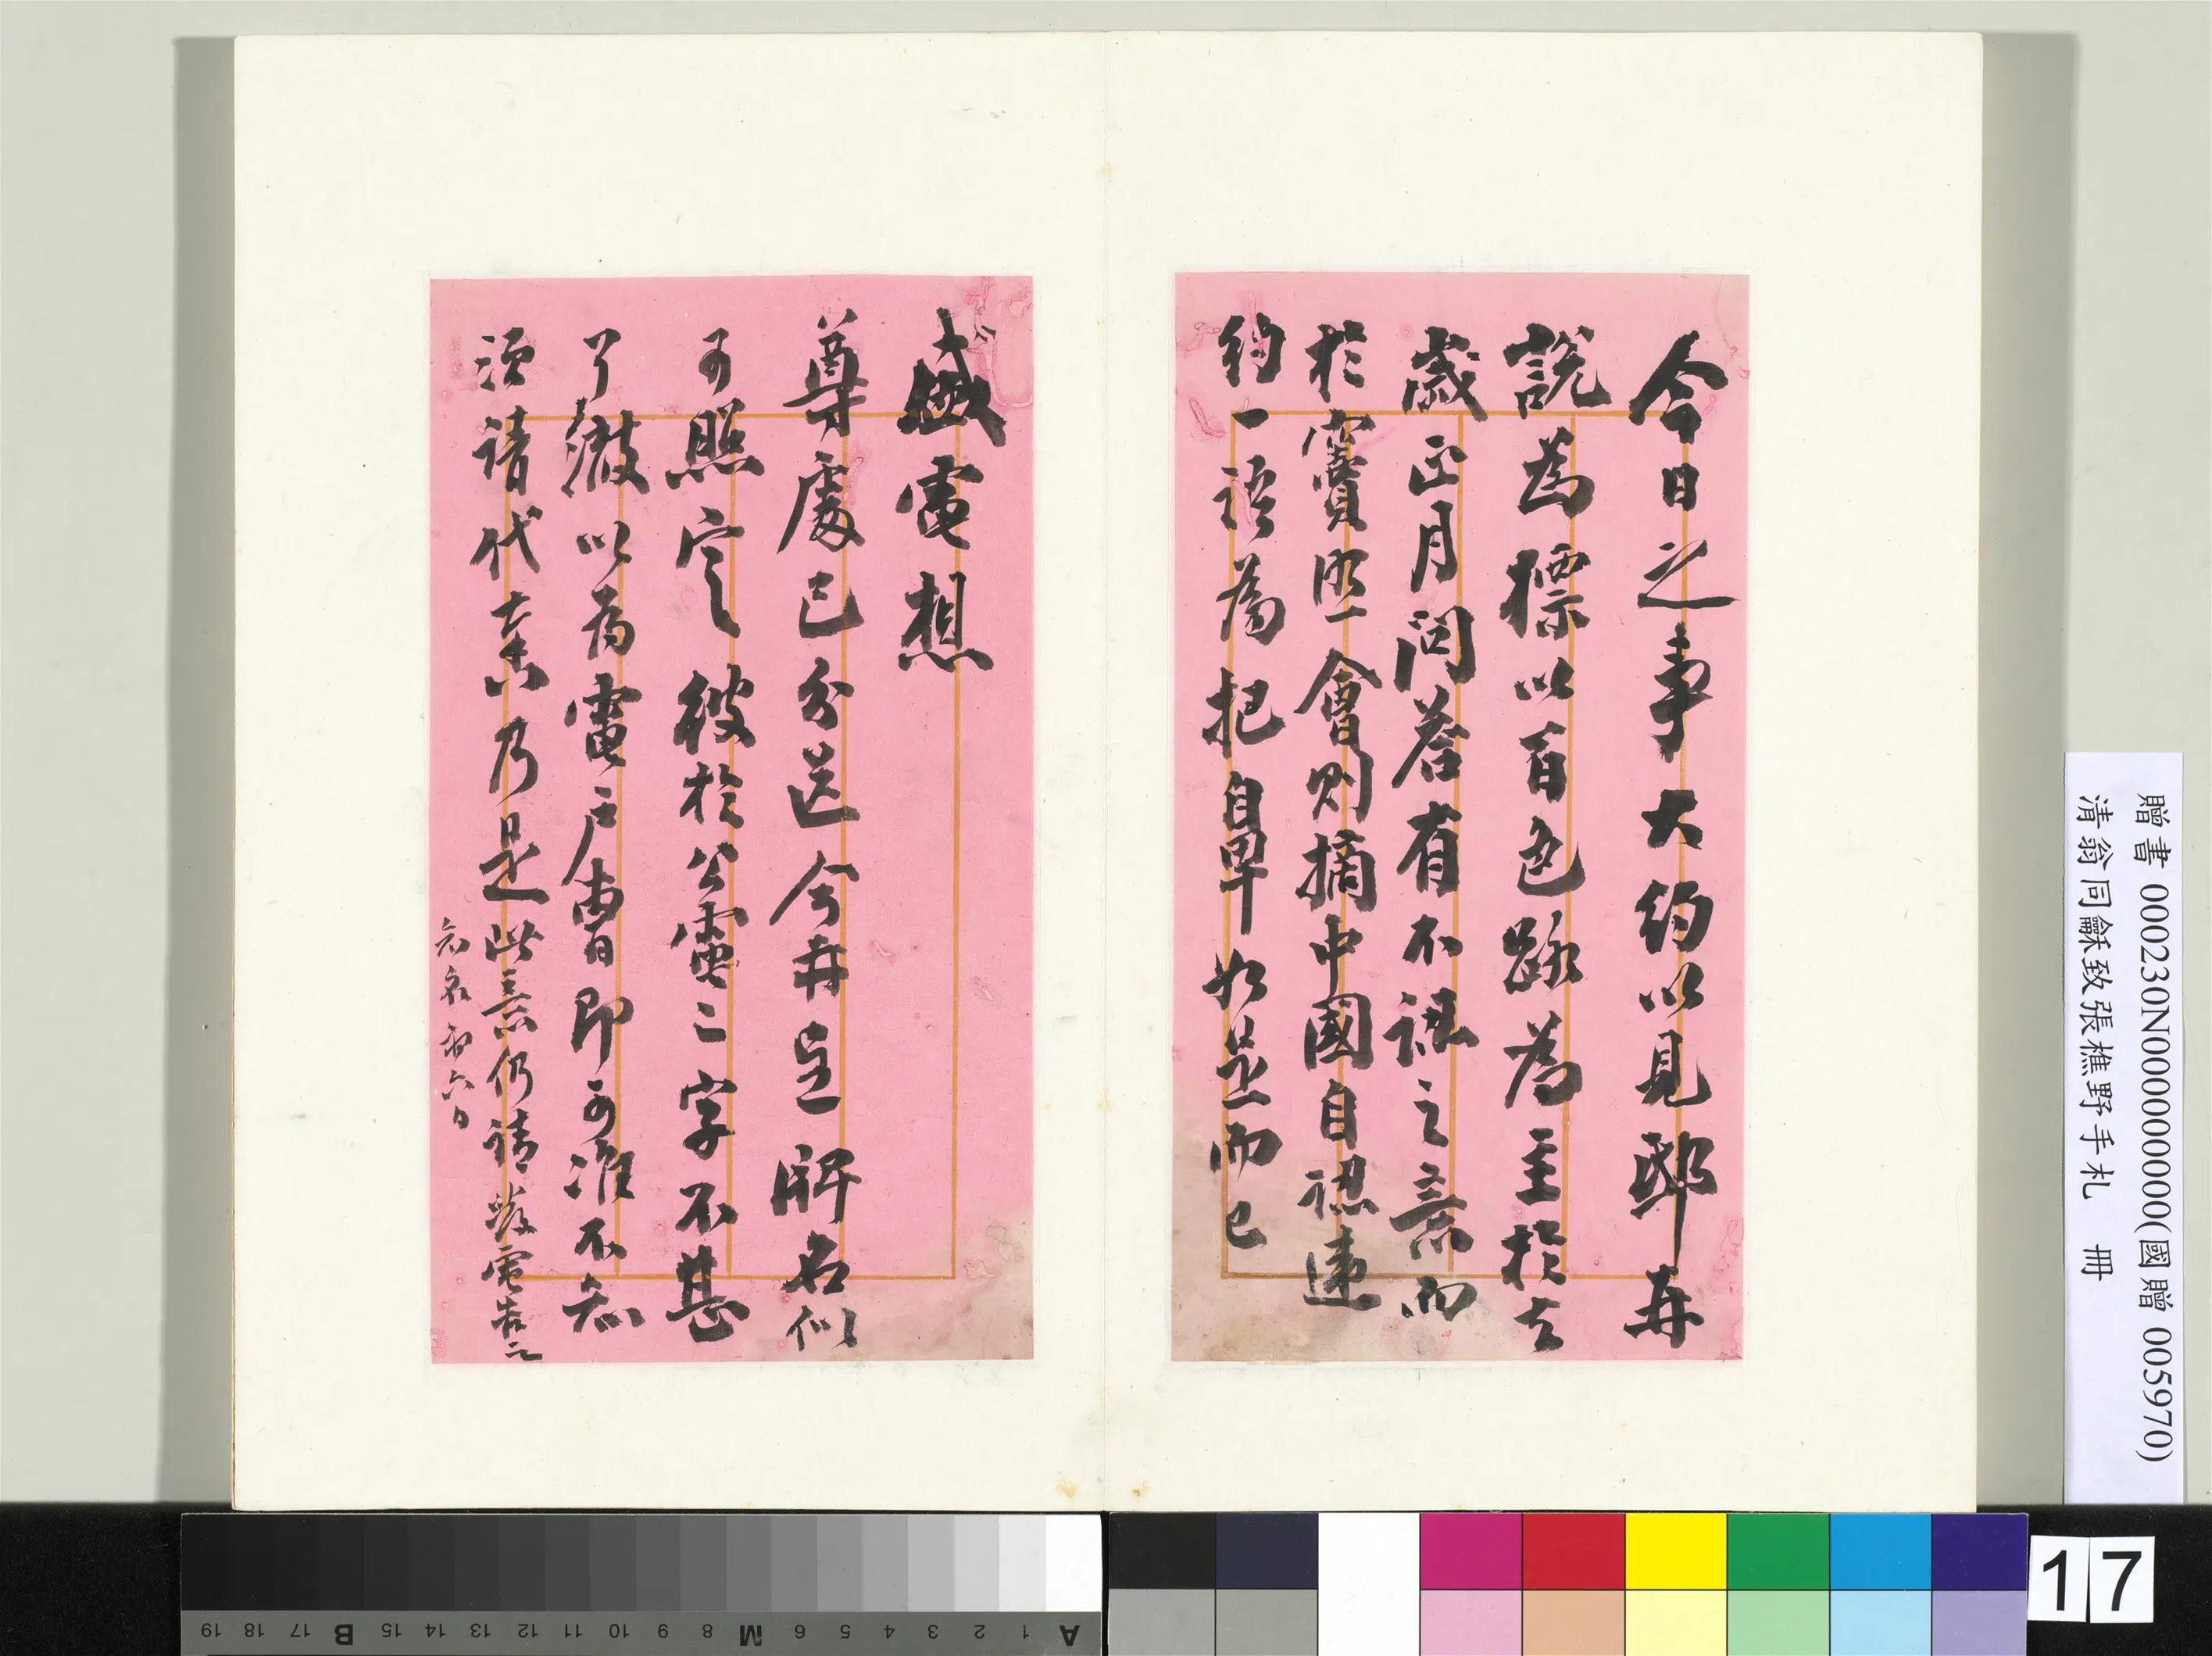 今日之事大約以見邸弃
說為標以百色路為主於去
歲正月問荅有不認之意而
於竇照會則摘中國自認違
約一語為把自畢如是而已
盛電想
尊處已分送今弃呈 解名似
可照定 彼於公電二字不甚
了徹以為電戶曹即可准不知
須請代奏乃是此意仍請發電告之
名泐 初六日
贈書 000230N000000000(國贈 005970)
清翁同龢致張樵野手札 冊
A 1 2 3 4 5 6 M 8 9 10 11 12 13 14 15 B 17 18 19
17